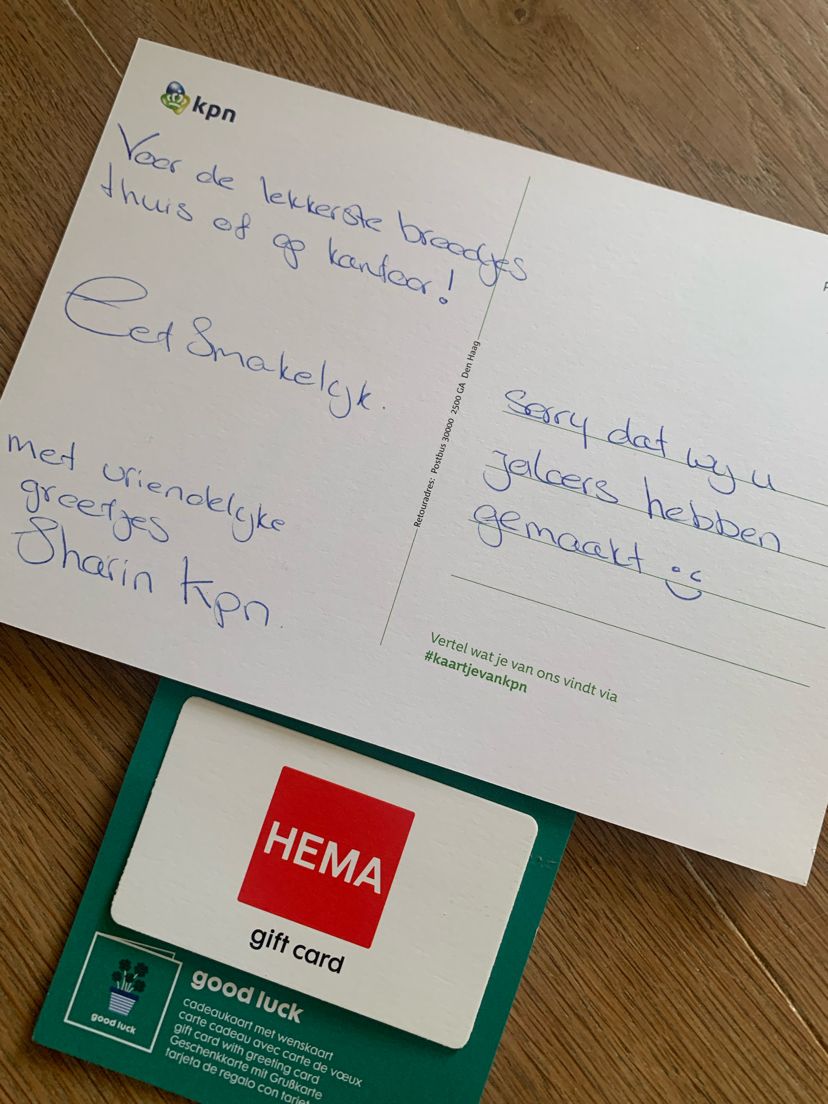 kpn
Voor de lekkerste broodjes
thuis of op kantoor!
Eet Smakelijk.
met vriendelijke
groetjes
Sharin Kpn.
Retouradres: Postbus 30000 2500 GA Den Haag
Sorry dat wij u
jaloers hebben
gemaakt :)
Vertel wat je van ons vindt via
#kaartjevankpn
HEMA
gift card
good luck
good luck
cadeaukaart met wenskaart
carte cadeau avec carte de vœux
gift card with greeting card
Geschenkkarte mit Grußkarte
tarjeta de regalo con tarjet